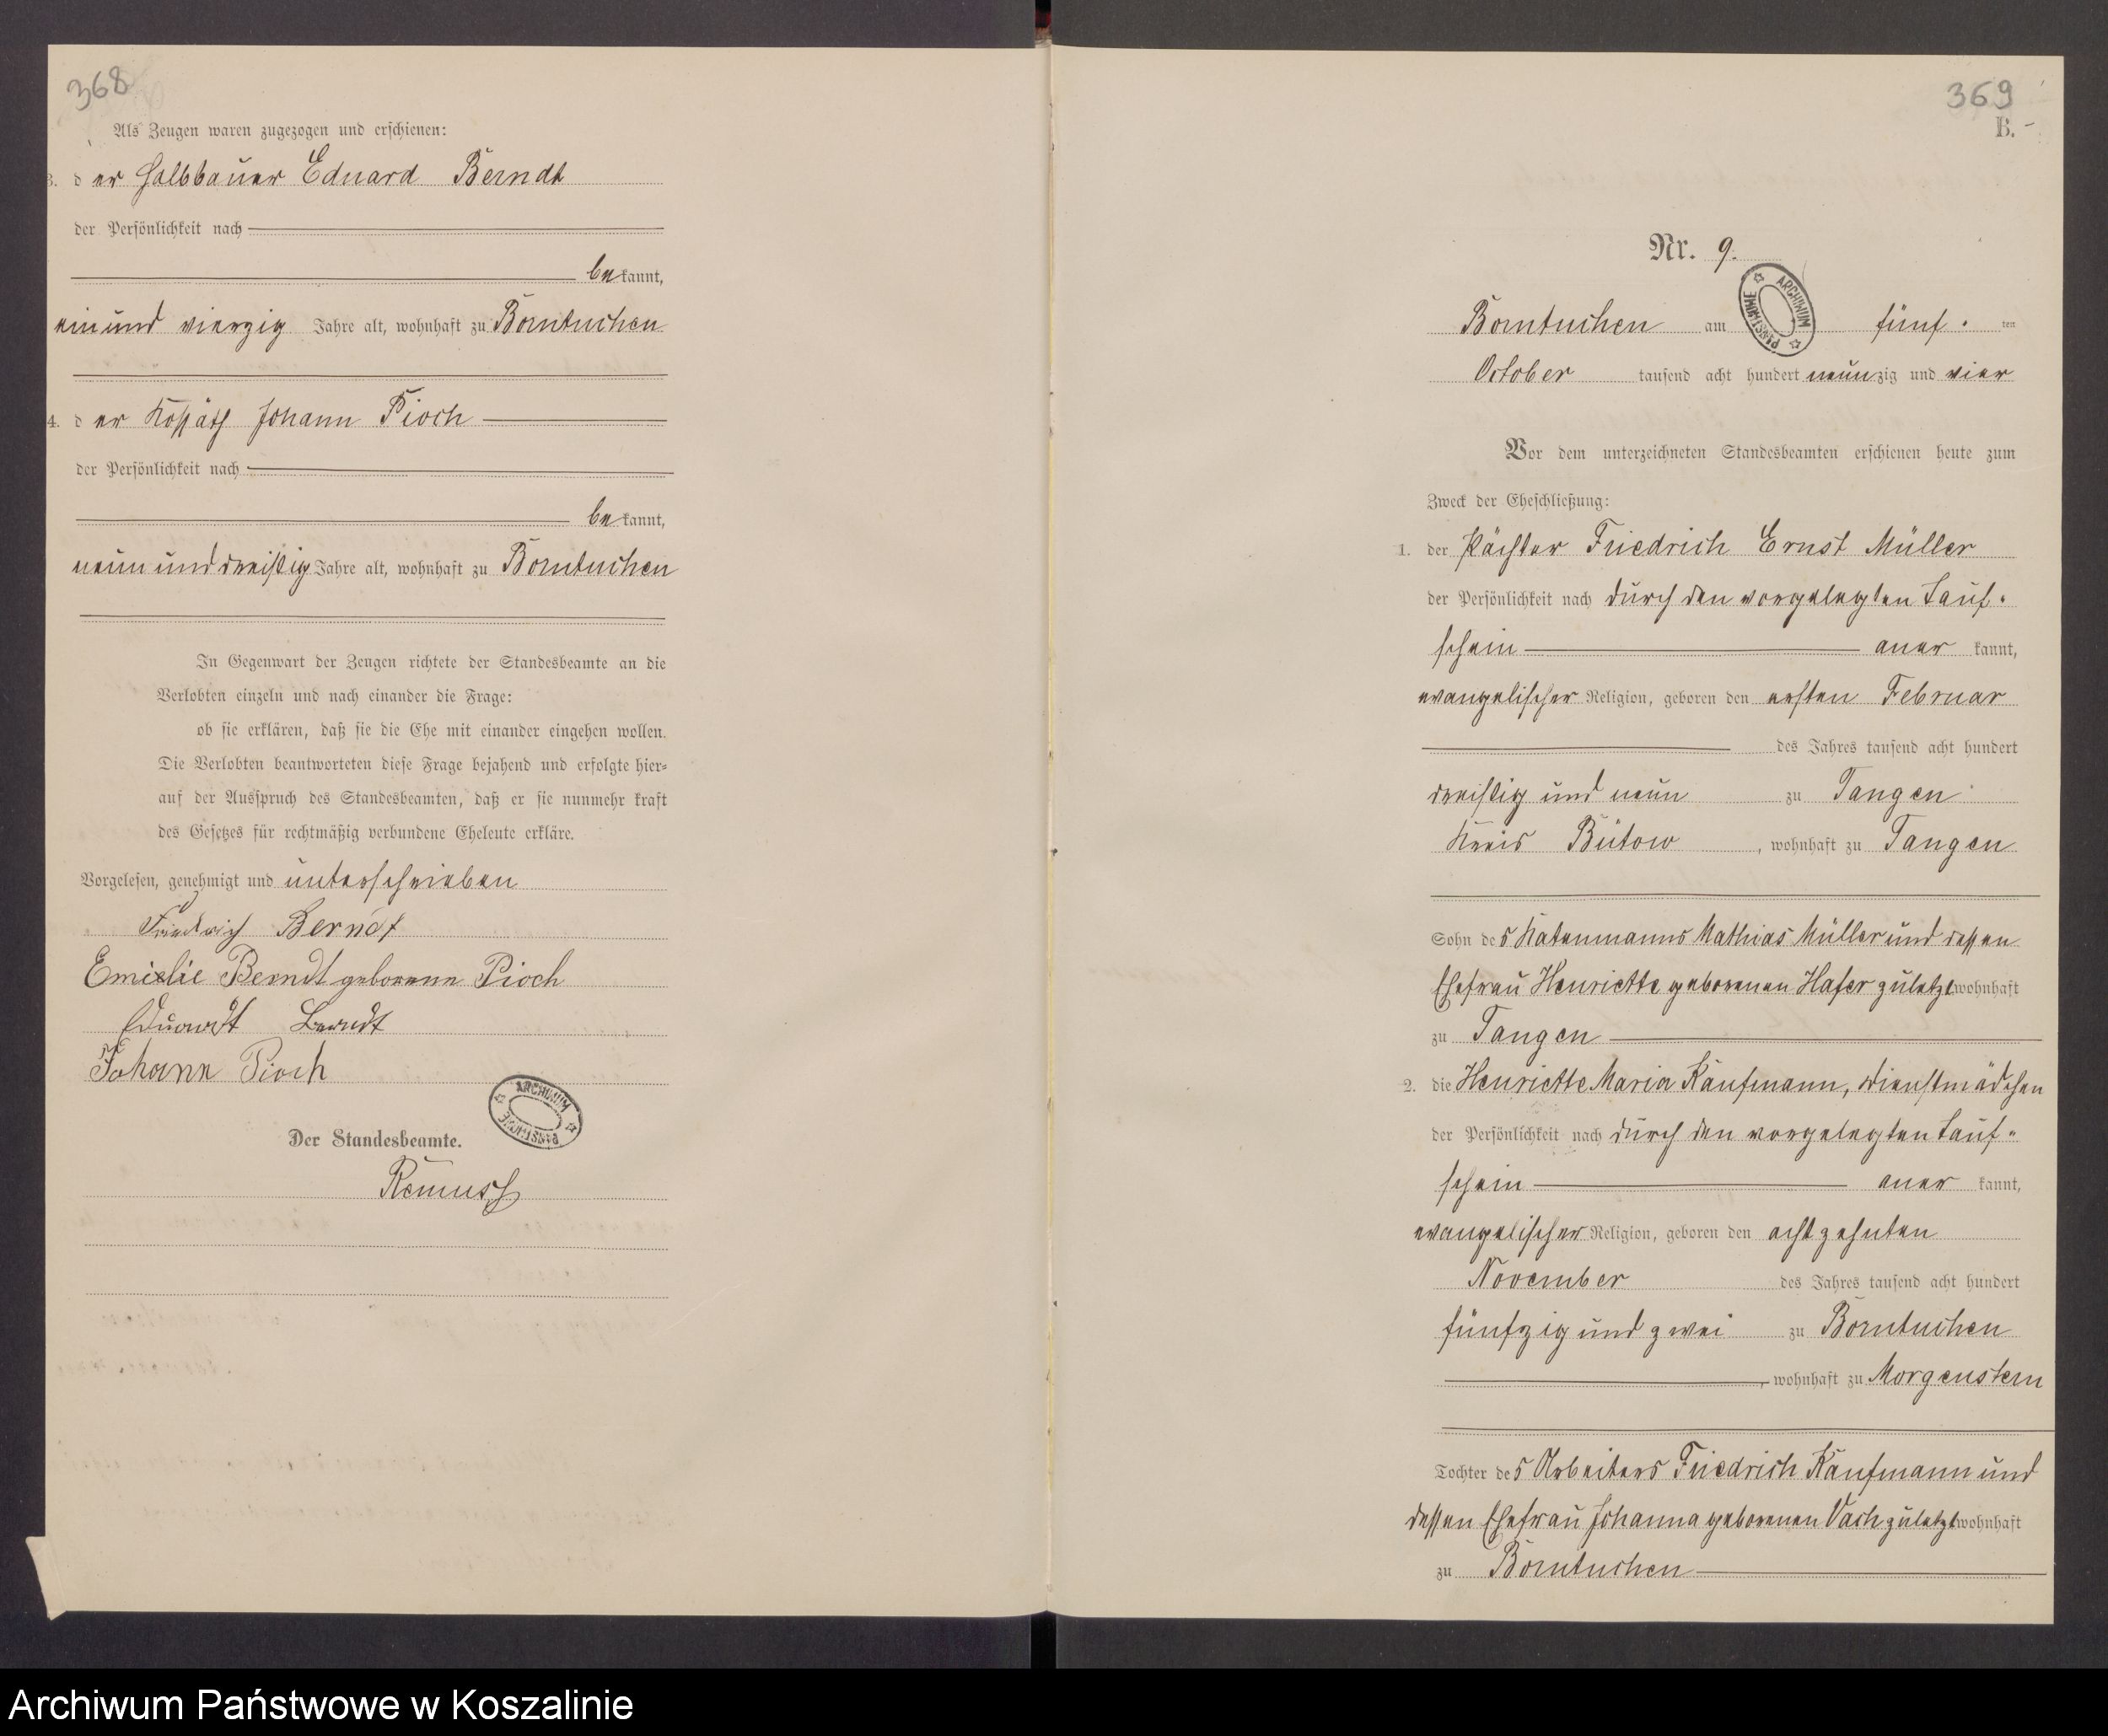 368
Als Zeugen waren zugezogen und erschienen:
3. der Halbbauer Eduard Berndt
der Persönlichkeit nach
bekannt,
ein und vierzig Jahre alt, wohnhaft zu Borntuchen
4. der Kossäth Johann Pioch
der Persönlichkeit nach
bekannt,
neun und dreißig Jahre alt, wohnhaft zu Borntuchen
In Gegenwart der Zeugen richtete der Standesbeamte an die
Verlobten einzeln und nach einander die Frage:
ob sie erklären, daß sie die Ehe mit einander eingehen wollen.
Die Verlobten beantworteten diese Frage bejahend und erfolgte hier-
auf der Ausspruch des Standesbeamten, daß er sie nunmehr kraft
des Gesetzes für rechtmäßig verbundene Eheleute erkläre.
Vorgelesen, genehmigt und unterschrieben
Friedrich Berndt
Emielie Berndt geborene Pioch
Eduardt Berndt
Johann Pioch
ARCHIWUM PAŃSTWOWE
Der Standesbeamte.
Remuss
369
B.
Nr. 9.
ARCHIWUM PAŃSTWOWE
Borntuchen am fünf ten
October tausend acht hundert neunzig und vier
Vor dem unterzeichneten Standesbeamten erschienen heute zum
Zweck der Eheschließung:
1. der Pächter Friedrich Ernst Müller
der Persönlichkeit nach durch den vorgelegten Tauf-
schein anerkannt,
evangelischer Religion, geboren den ersten Februar
des Jahres tausend acht hundert
dreißig und neun zu Tangen
Kreis Bütow, wohnhaft zu Tangen
Sohn des Katenmanns Mathias Müller und dessen
Ehefrau Henriette geborenen Hafer zuletzt wohnhaft
zu Tangen
2. die Henriette Maria Kaufmann, Dienstmädchen
der Persönlichkeit nach durch den vorgelegten Tauf-
schein anerkannt,
evangelischer Religion, geboren den achtzehnten
November des Jahres tausend acht hundert
fünfzig und zwei zu Borntuchen
, wohnhaft zu Morgenstern
Tochter des Arbeiters Friedrich Kaufmann und
dessen Ehefrau Johanna geborenen Vach zuletzt wohnhaft
zu Borntuchen
Archiwum Państwowe w Koszalinie